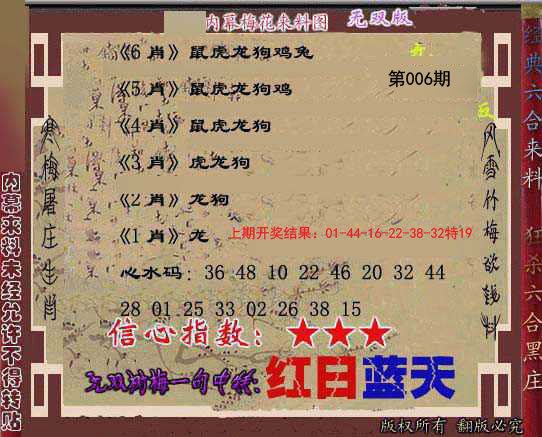 内幕梅花来料图 无双版
《6 肖》鼠虎龙狗鸡兔
第006期
《5 肖》鼠虎龙狗鸡
《4 肖》鼠虎龙狗
《3 肖》虎龙狗
《2 肖》龙狗
《1 肖》龙
上期开奖结果：01-44-16-22-38-32特19
心水码：36 48 10 22 46 20 32 44
28 01 25 33 02 26 38 15
信心指数：★★★
无双湖梅一句中特:红日蓝天
寒梅屠庄生肖
风雪竹梅欲钱料
内幕来料未经允许不得转贴
经典六合来料 狂杀六合黑庄
版权所有 翻版必究